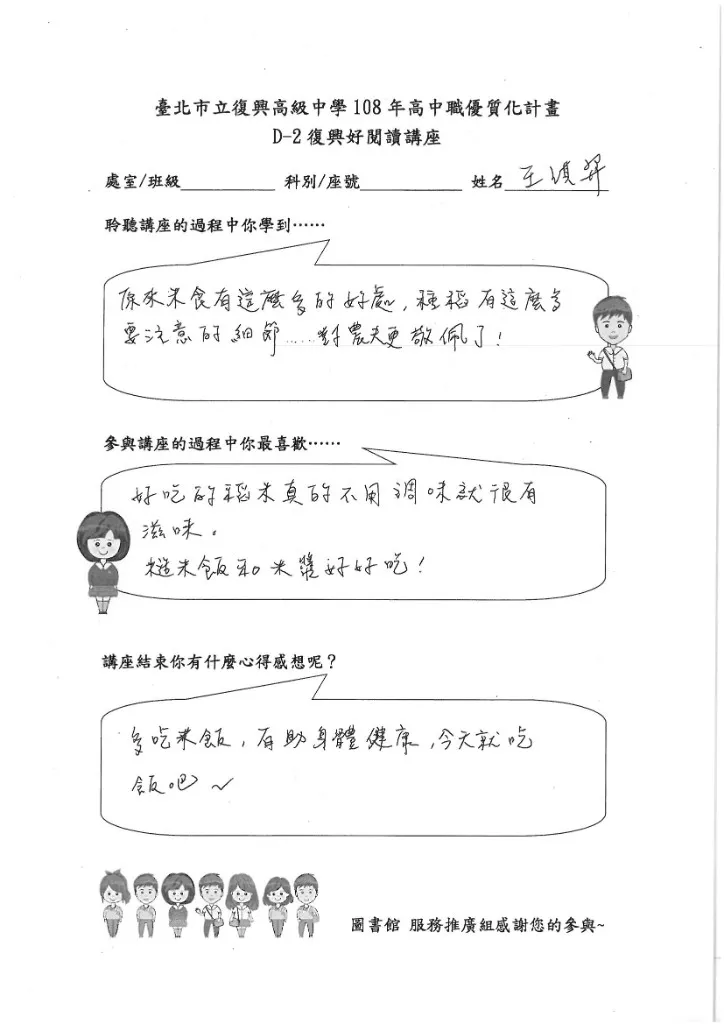 臺北市立復興高級中學108年高中職優質化計畫
D-2復興好閱讀講座
處室/班級 科別/座號 姓名 王琪昇
聆聽講座的過程中你學到⋯⋯
原來米食有這麼多的好處,種稻有這麼多
要注意的細節……對農夫更敬佩了!
參與講座的過程中你最喜歡⋯⋯
好吃的稻米真的不用調味就很有
滋味。
糙米飯和米漿好好吃!
講座結束你有什麼心得感想呢?
多吃米飯,有助身體健康,今天就吃
飯吧~
圖書館 服務推廣組感謝您的參與~